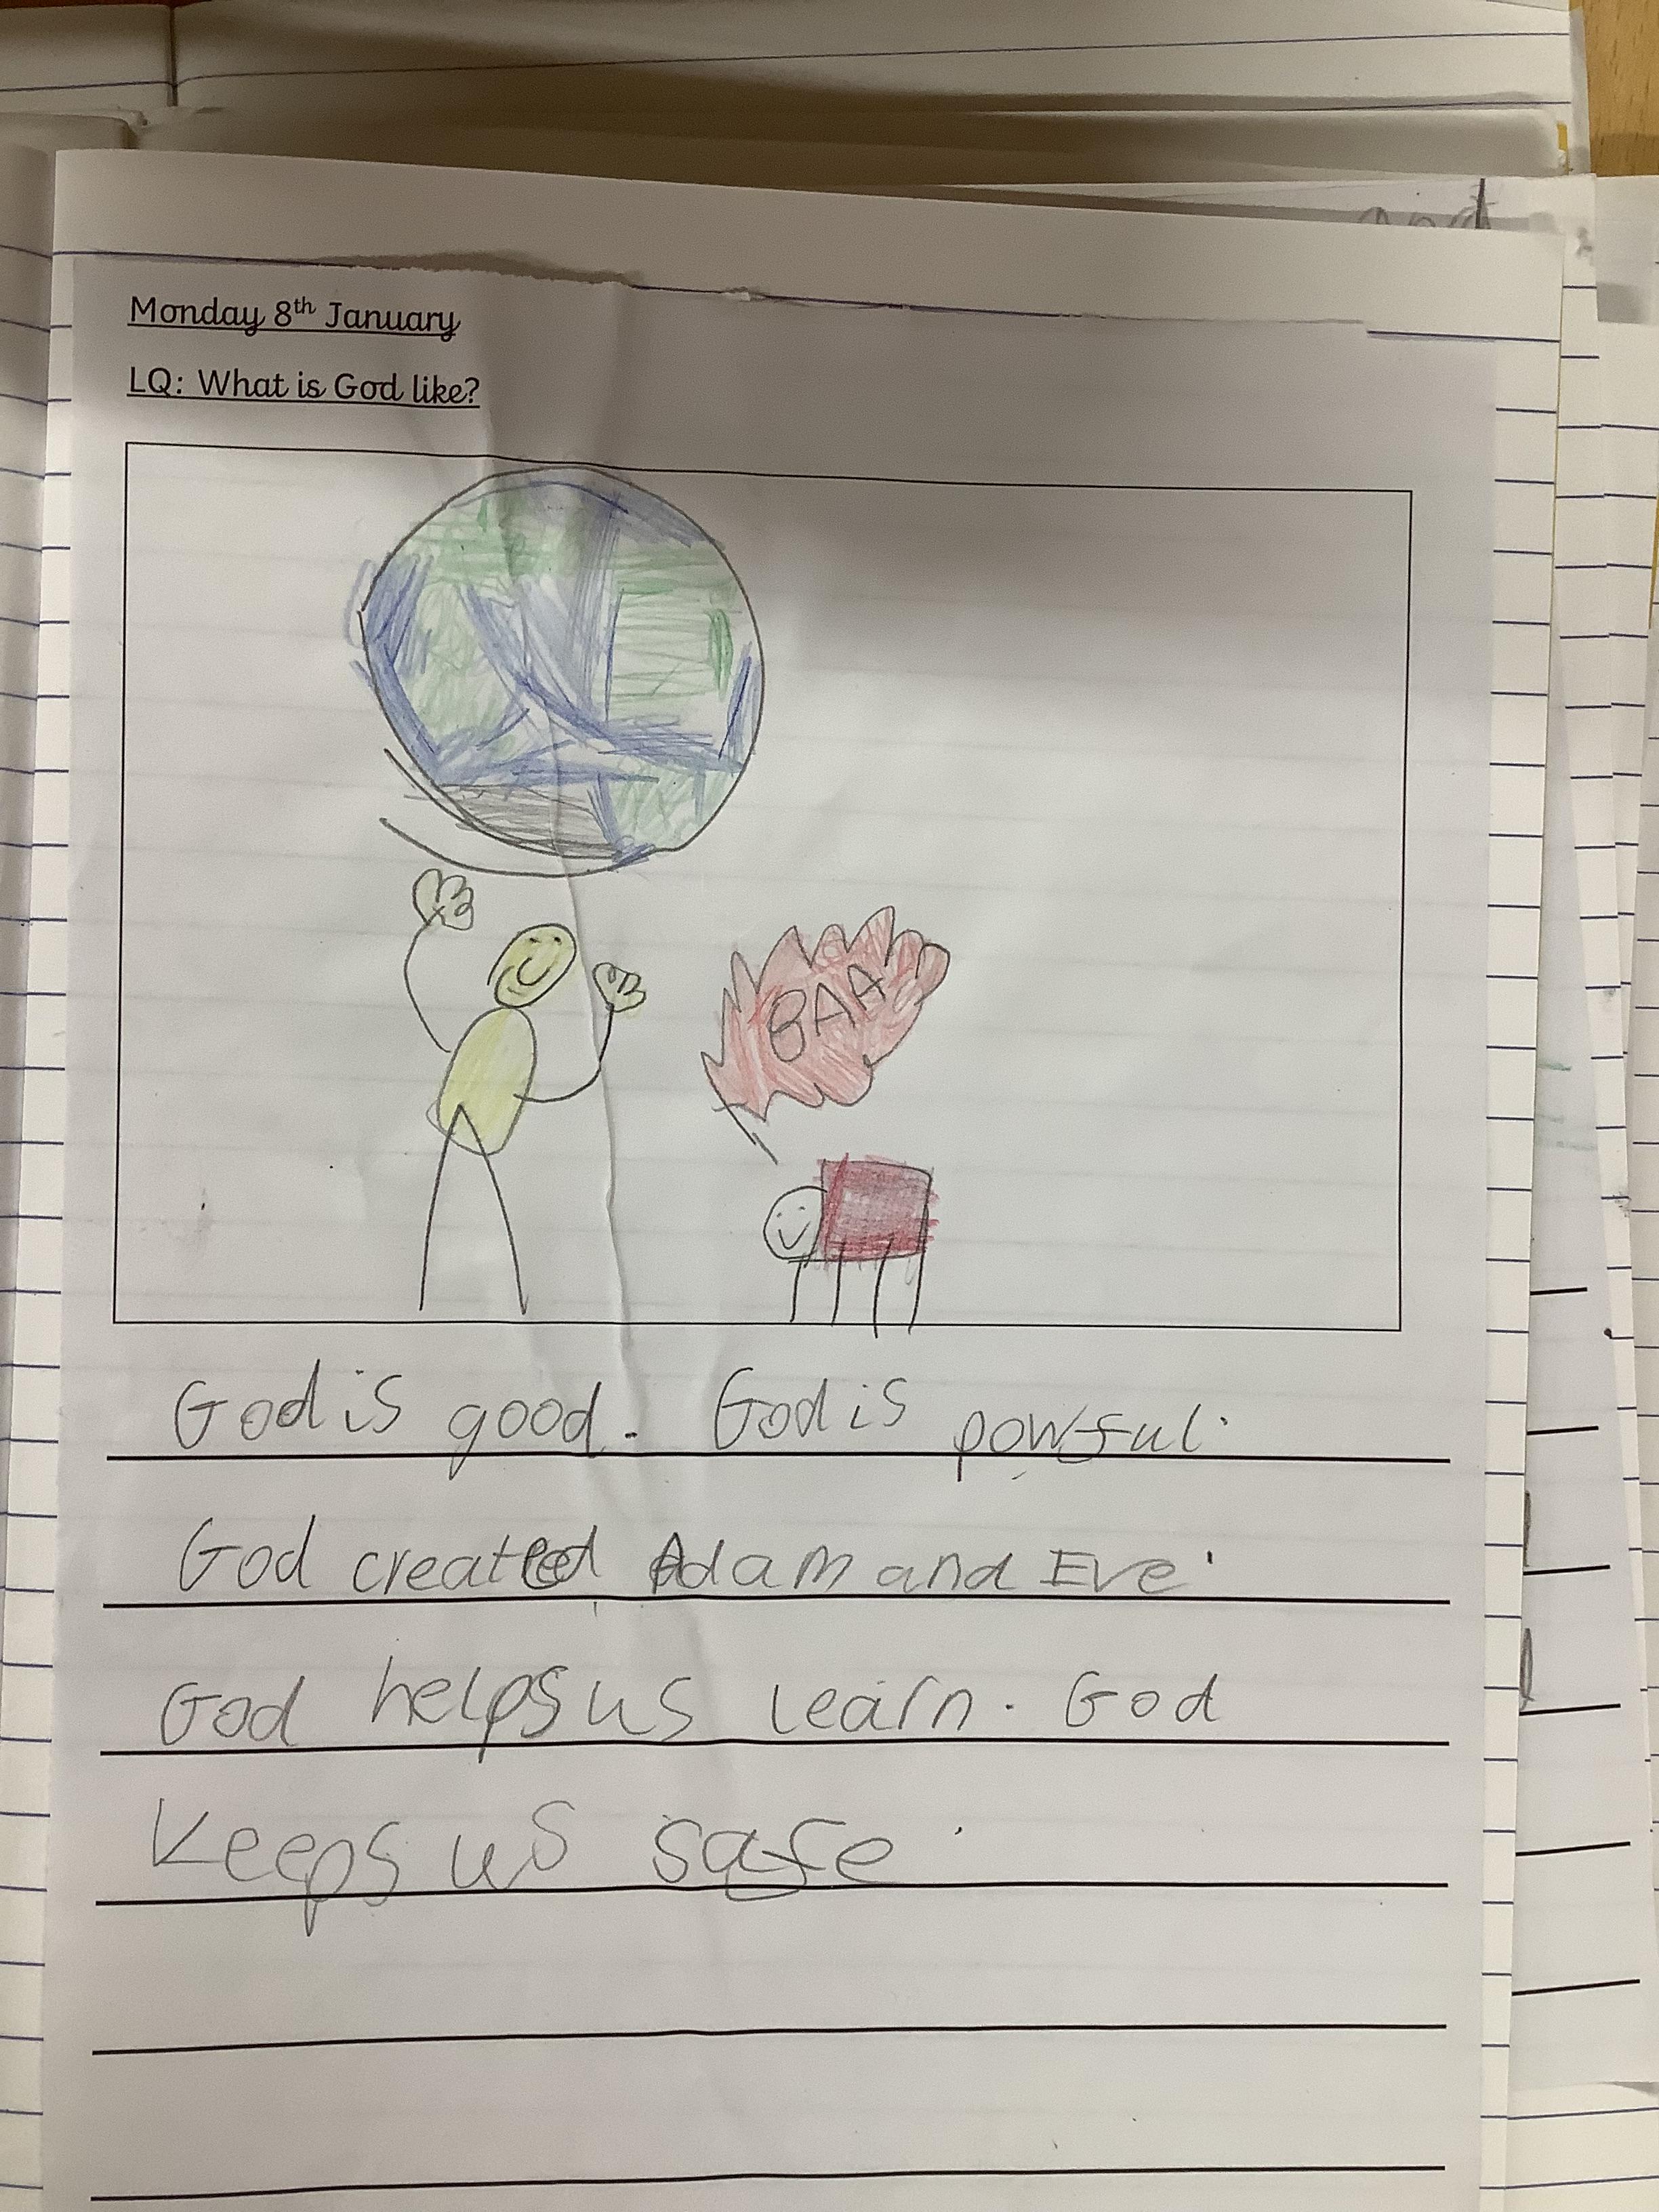 and
Monday 8th January
LQ: What is God like?
BAA
God is good. God is powful.
God created Adam and Eve.
God helps us learn. God
Keeps us safe.